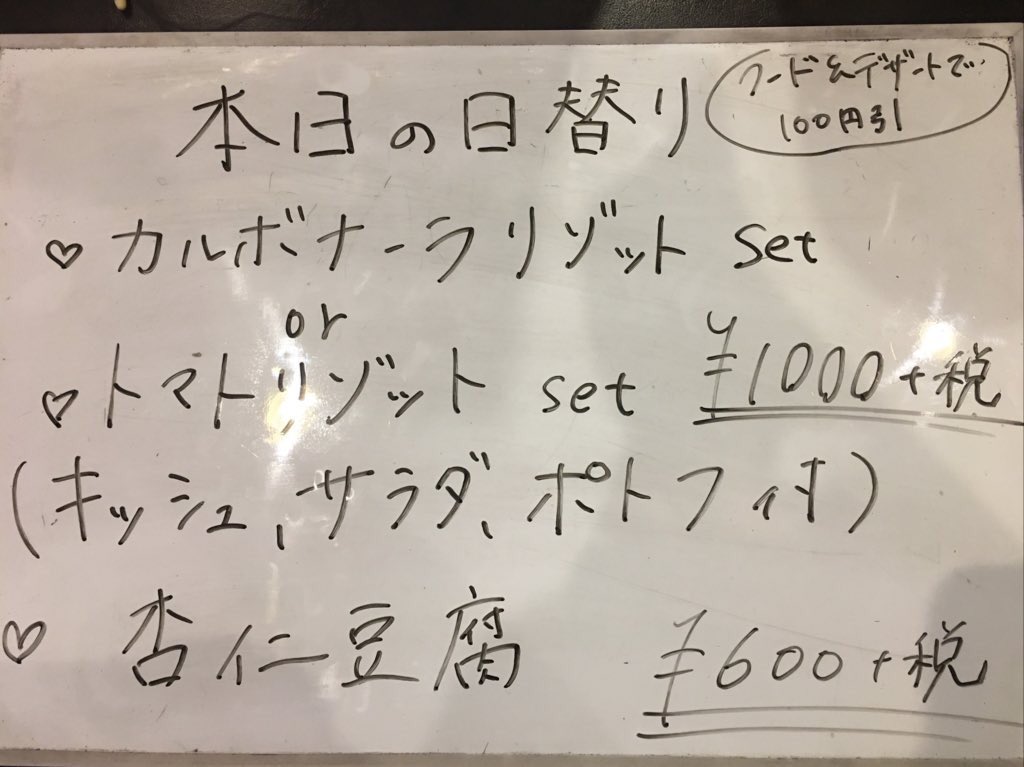 本日の日替り
フード&デザートで
100円引
♡ カルボナーラリゾット set
or
♡ トマトリゾット set ¥1000+税
(キッシュ、サラダ、ポトフ付)
♡ 杏仁豆腐 ¥600+税